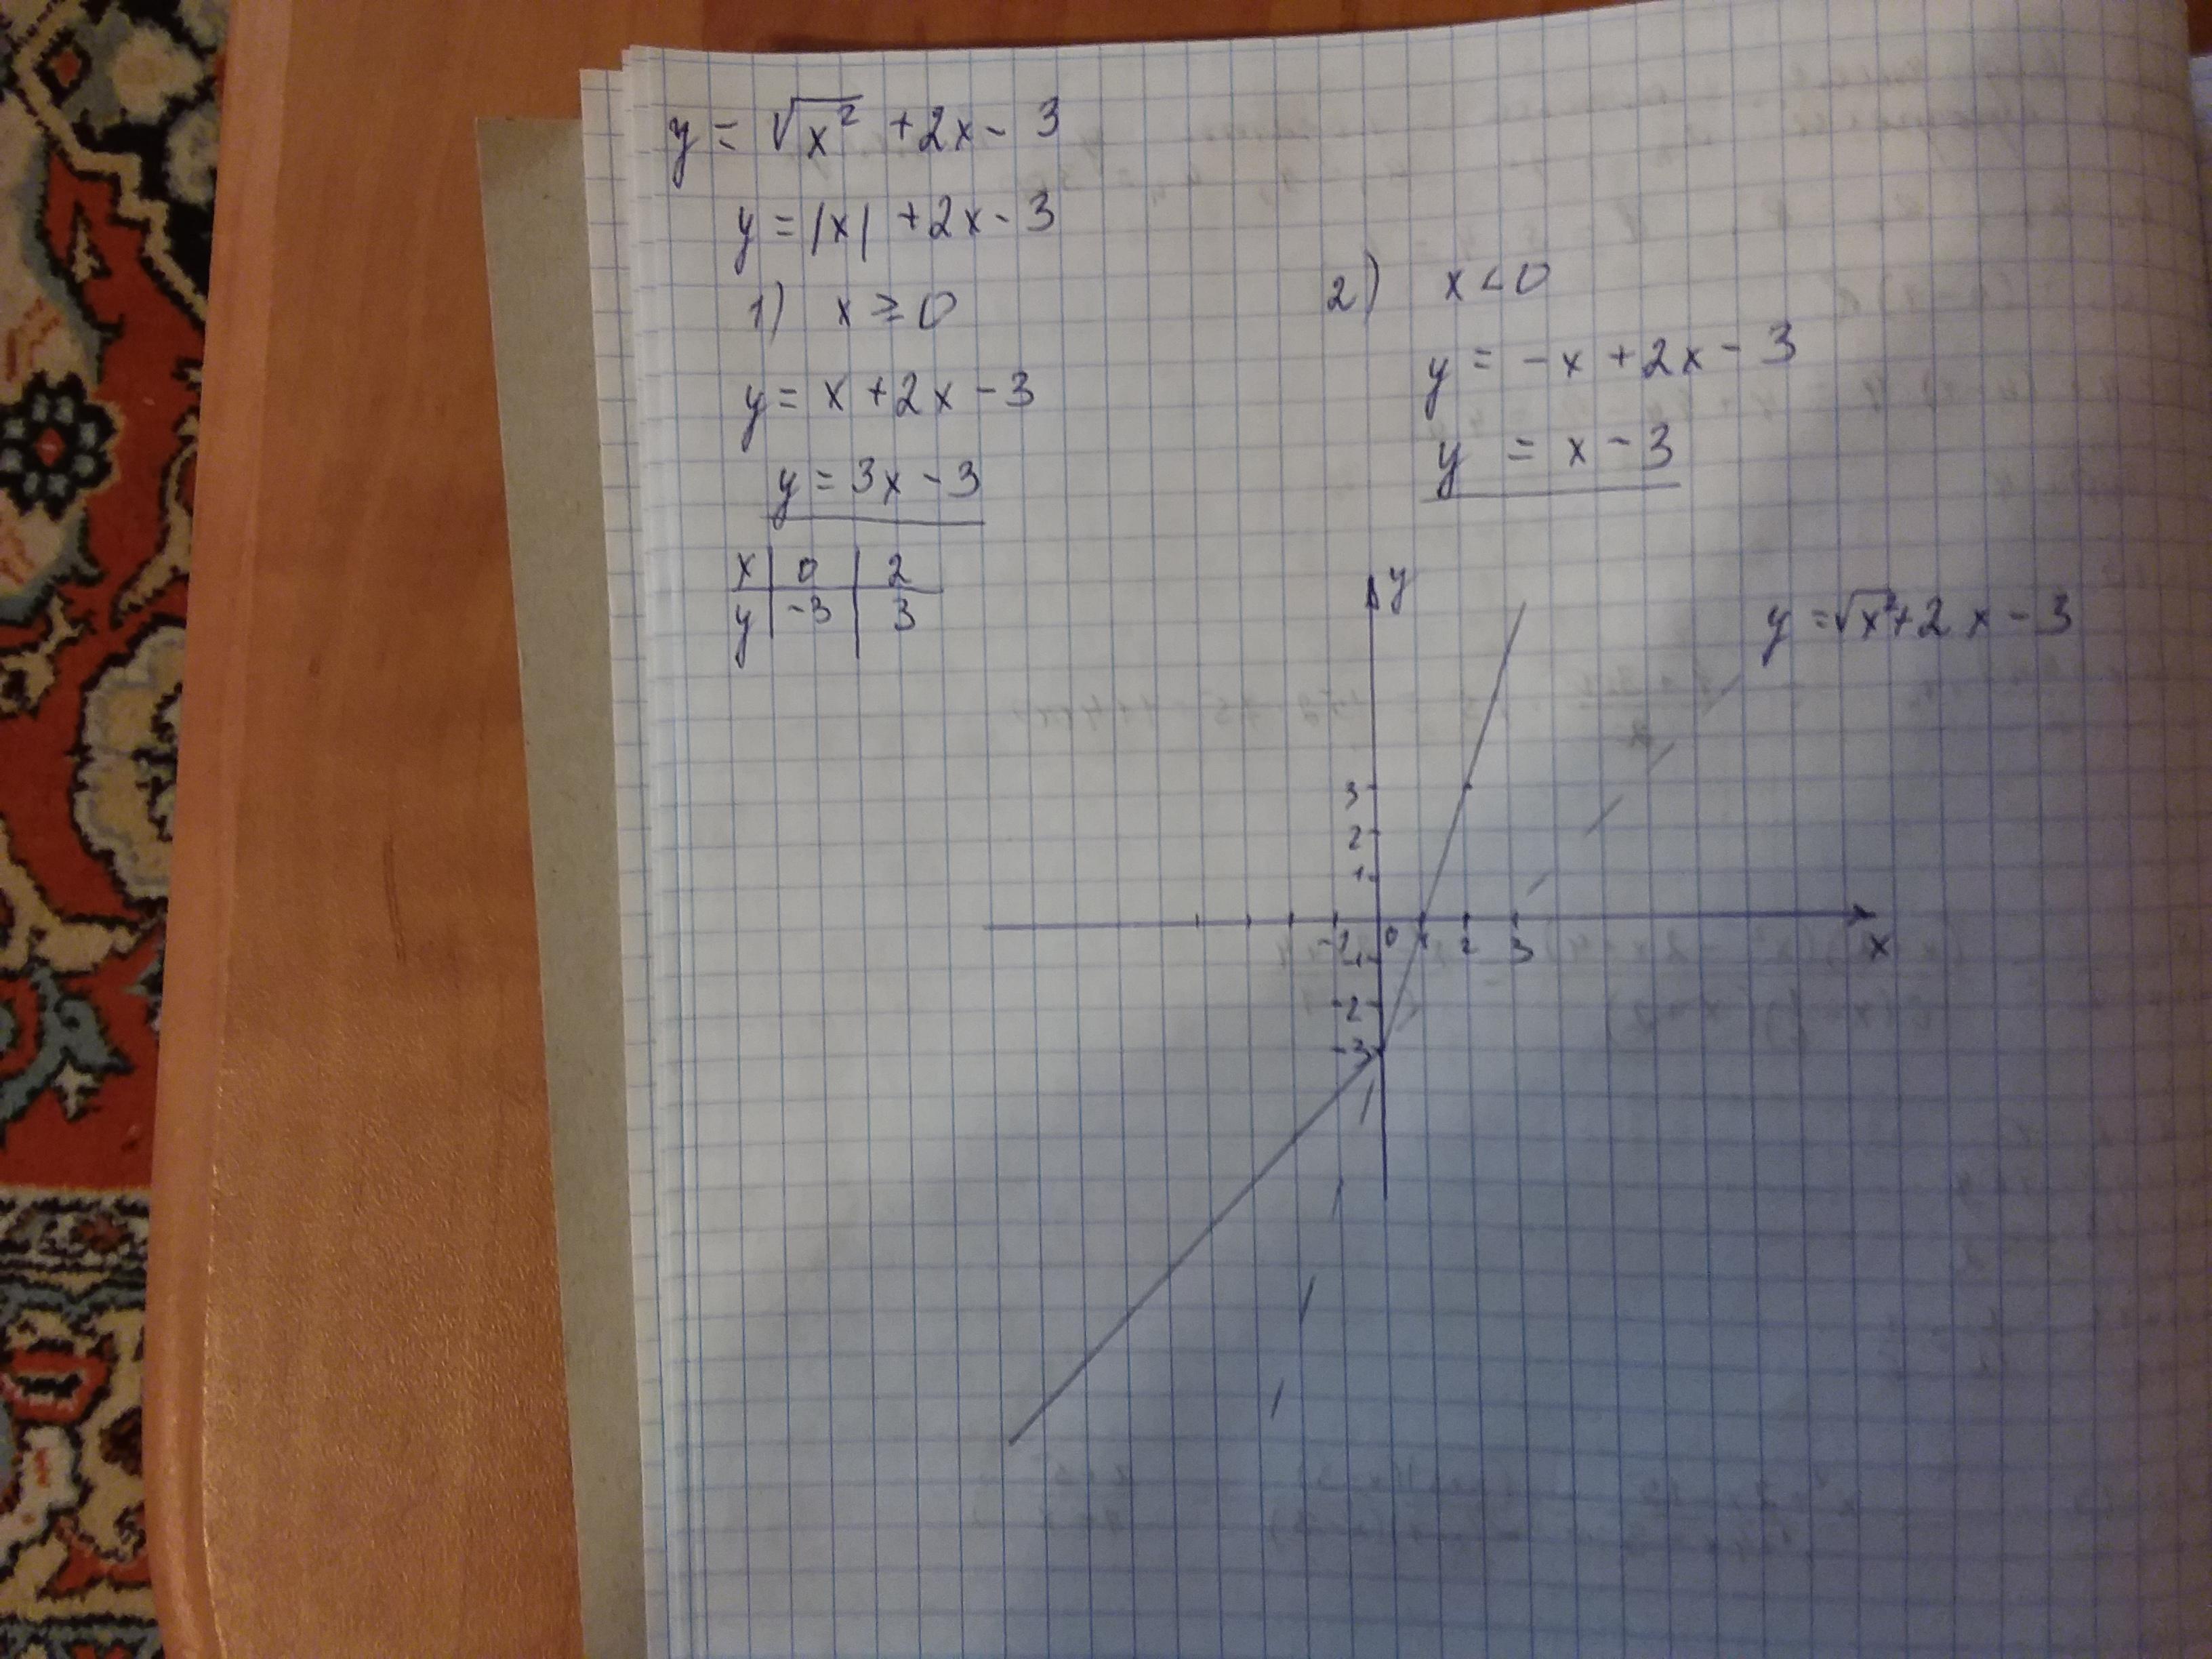 y = √x² + 2x - 3
y = |x| + 2x - 3
1) x ≥ 0
y = x + 2x - 3
y = 3x - 3
x | 0 | 2
y | -3 | 3
2) x < 0
y = -x + 2x - 3
y = x - 3
y
y = √x² + 2x - 3
3
2
1
-1 0 1 2 3 x
-1
-2
-3